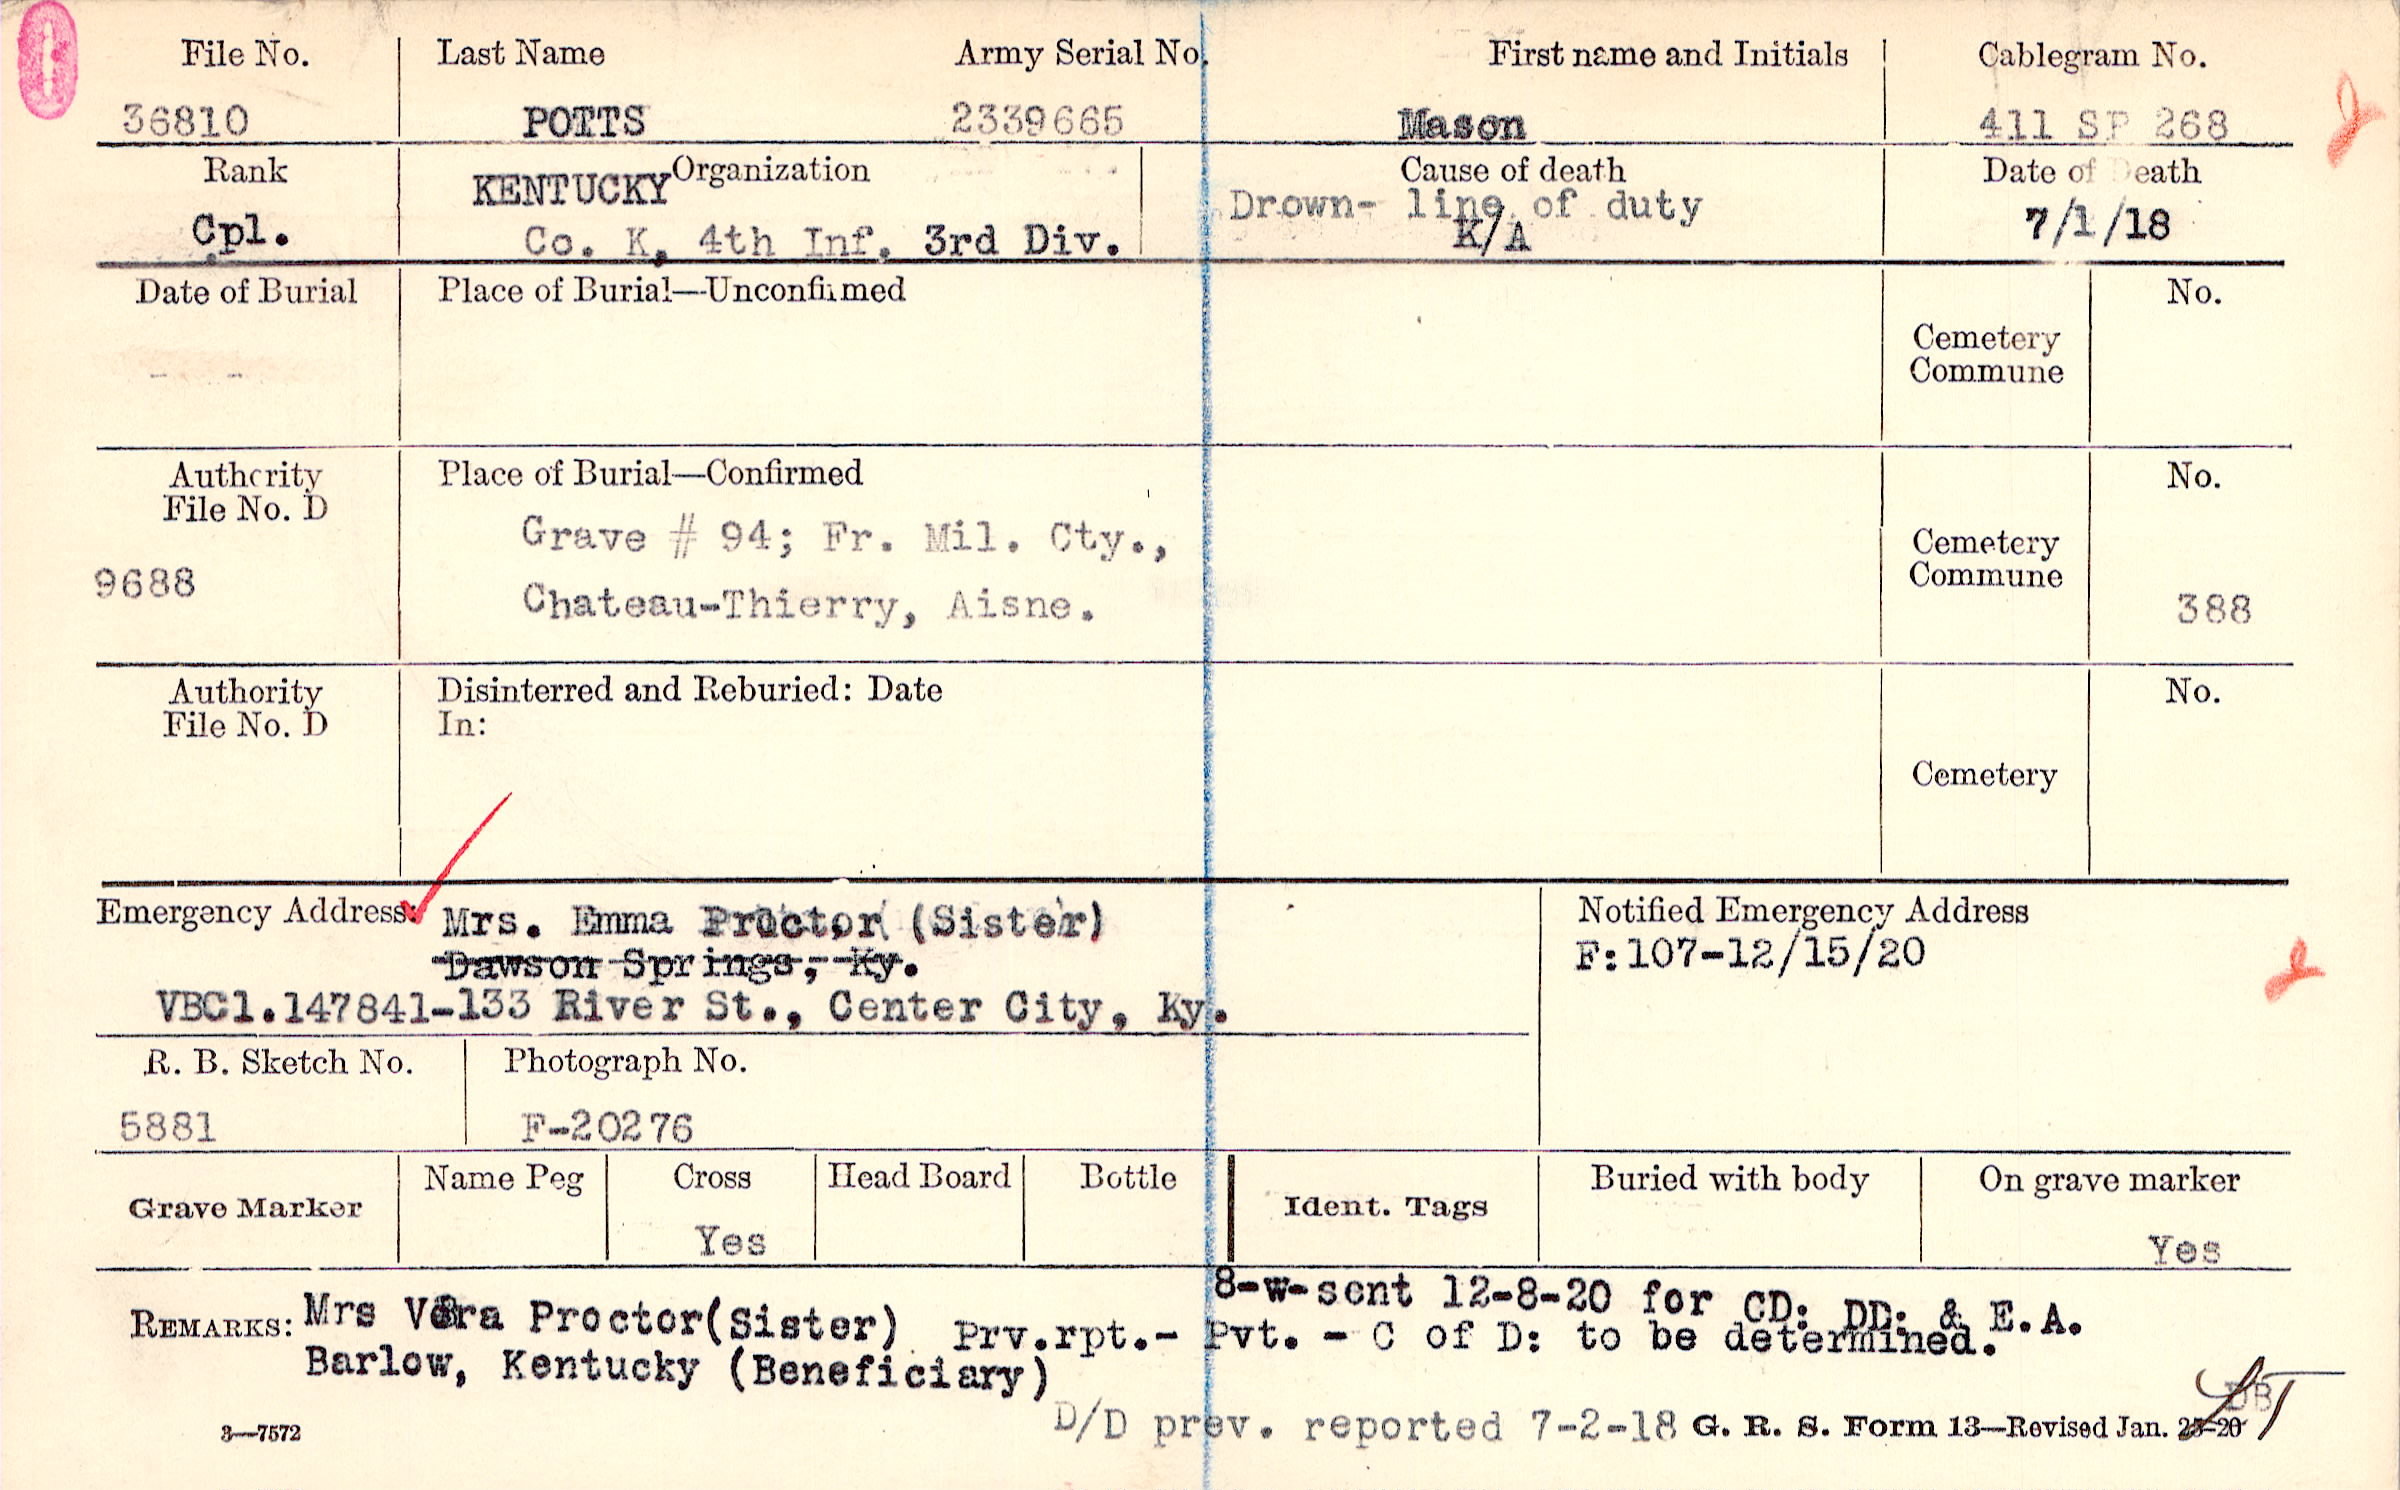 File No. Last Name Army Serial No. First name and Initials Cablegram No.
36810 POTTS 2339665 Mason 411 SP 268
Rank Organization Cause of death Date of Death
KENTUCKY Drown- line of duty
Cpl. Co. K, 4th Inf. 3rd Div. K/A 7/1/18
Date of Burial Place of Burial—Unconfirmed No.
Cemetery
Commune
Authority Place of Burial—Confirmed No.
File No. D
Grave # 94; Fr. Mil. Cty., Cemetery
Commune
9688 Chateau-Thierry, Aisne. 388
Authority Disinterred and Reburied: Date No.
File No. D In:
Cemetery
Emergency Address: Mrs. Emma Proctor (Sister) Notified Emergency Address
Dawson Springs, Ky. F:107-12/15/20
VBC1.147841-133 River St., Center City, Ky.
R. B. Sketch No. Photograph No.
5881 F-20276
Name Peg Cross Head Board Bottle Buried with body On grave marker
Grave Marker Ident. Tags
Yes Yes
8-w-sent 12-8-20 for CD: DD: & E.A.
REMARKS: Mrs Vera Proctor(Sister) Prv.rpt.- Pvt. - C of D: to be determined.
Barlow, Kentucky (Beneficiary)
D/D prev. reported 7-2-18 G. R. S. Form 13—Revised Jan.
3—7572